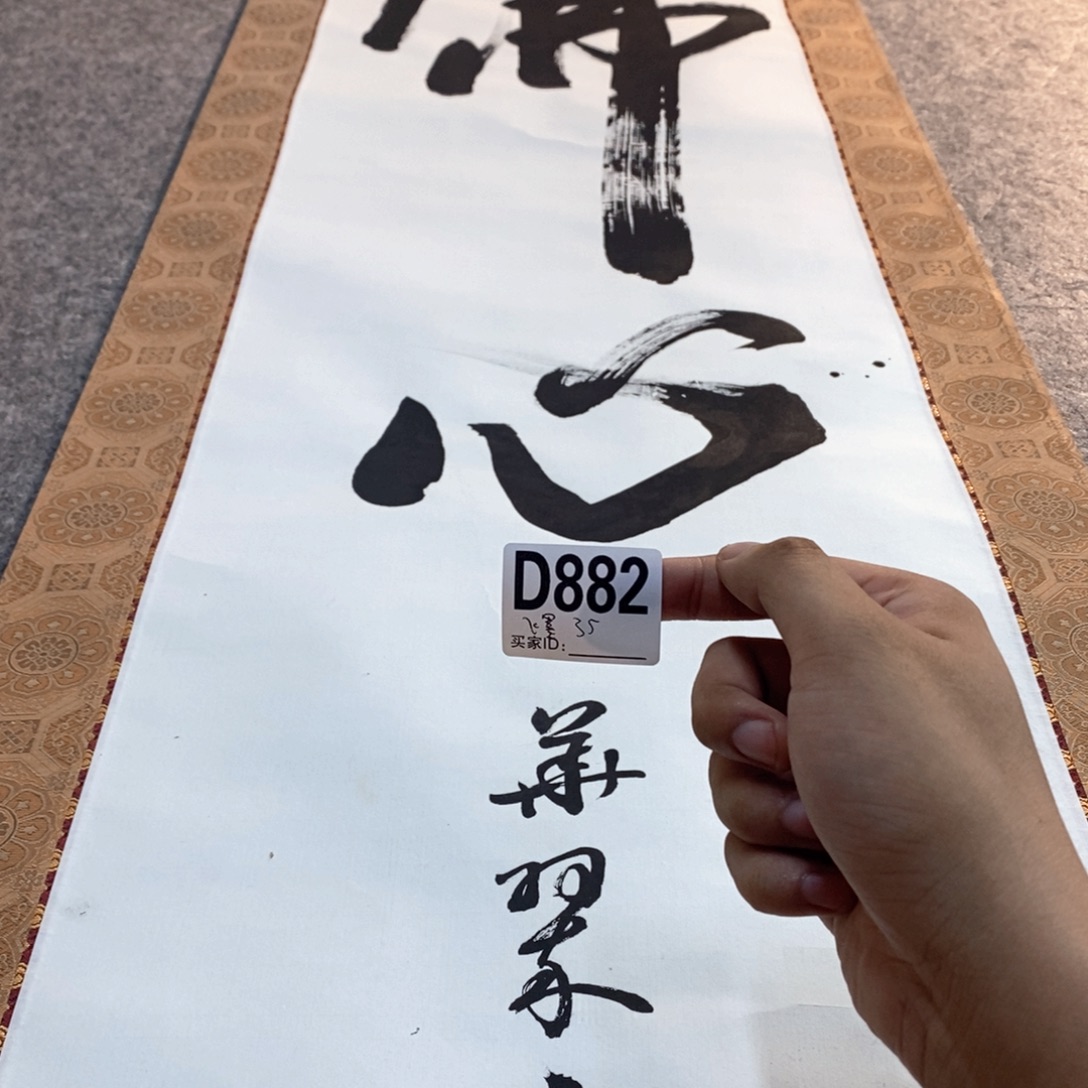 佛
心
D882
35
买家ID:
華
翠